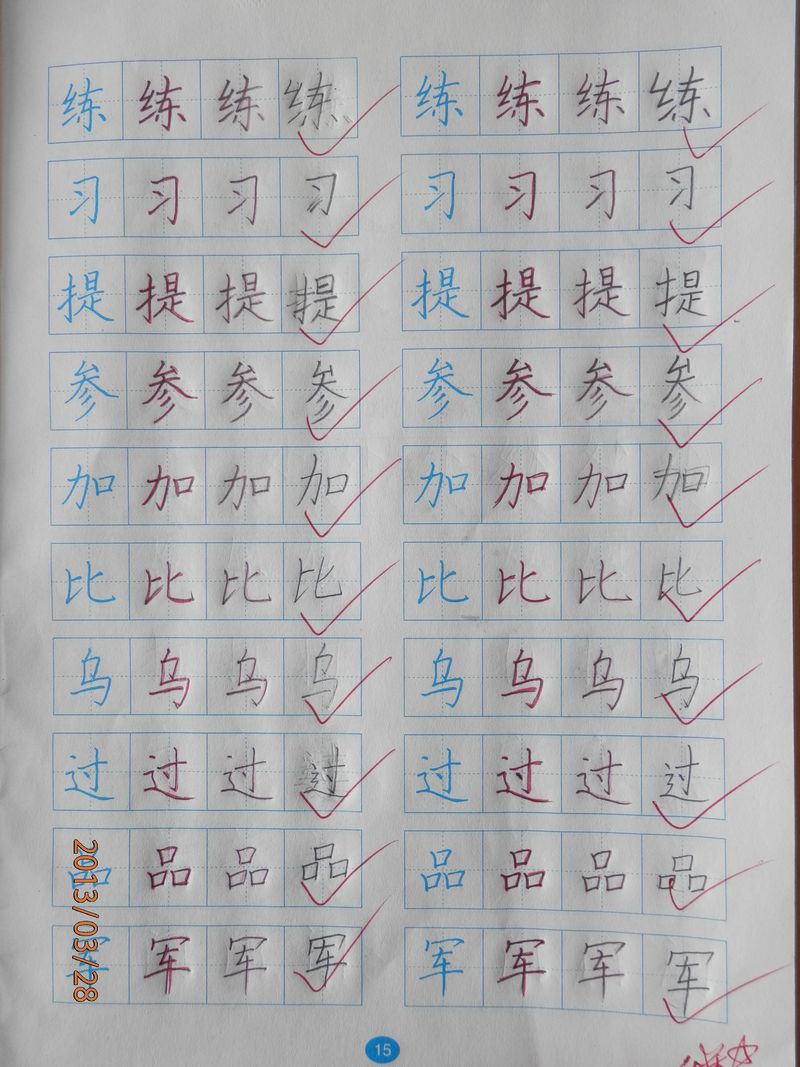 练 练 练 练 练 练 练 练
习 习 习 习 习 习 习 习
提 提 提 提 提 提 提 提
参 参 参 参 参 参 参 参
加 加 加 加 加 加 加 加
比 比 比 比 比 比 比 比
乌 乌 乌 乌 乌 乌 乌 乌
过 过 过 过 过 过 过 过
品 品 品 品 品 品 品 品
军 军 军 军 军 军 军 军
2013/03/28
15